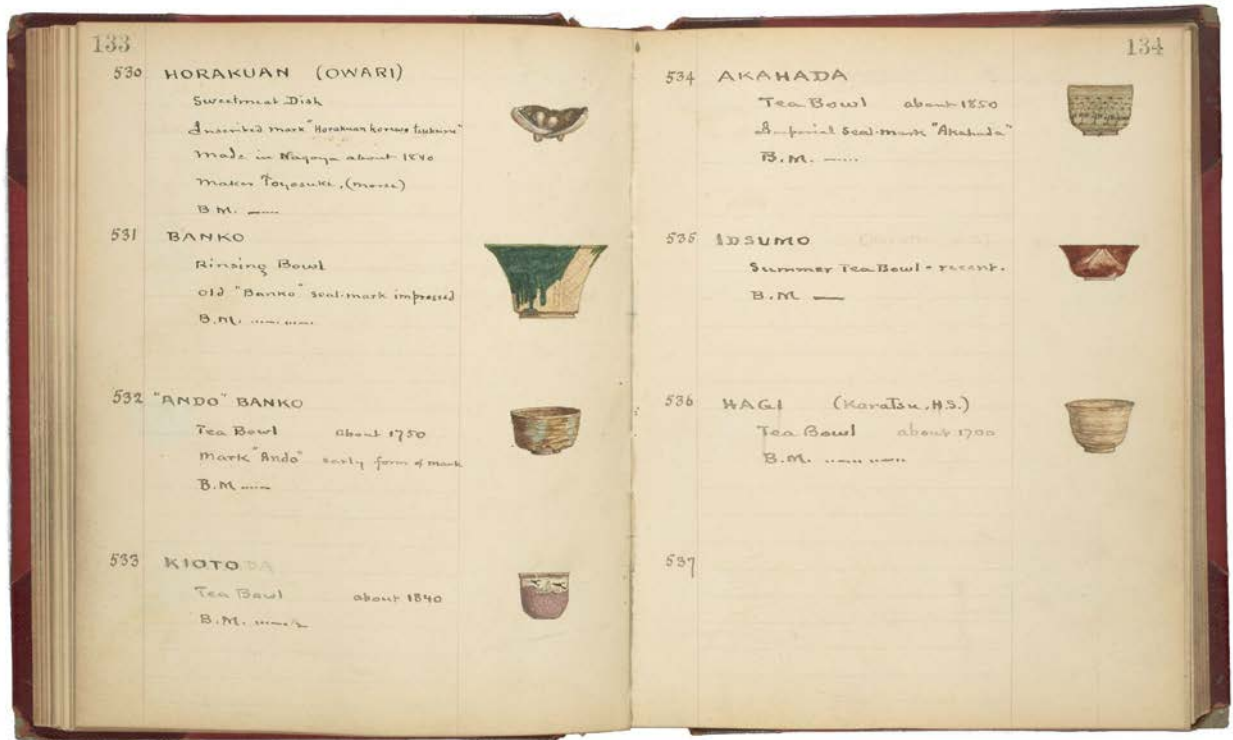 133
530 HORAKUAN (OWARI)
Sweetmeat Dish
Inscribed mark "Horakuan
Made in Nagoya about 1840
Maker Toyosuki, (Morse)
B.M.
531 BANKO
Rinsing Bowl
Old "Banko" seal-mark impressed
B.M.
532 "ANDO" BANKO
Tea Bowl about 1750
Mark "Ando" early form of mark
B.M.
533 KIOTO
Tea Bowl about 1840
B.M.
134
534 AKAHADA
Tea Bowl about 1850
Imperial Seal-mark "Akahada"
B.M.
535 IDSUMO
Summer Tea Bowl - recent.
B.M.
536 HAGI (Karatsu, H.S.)
Tea Bowl about 1700
B.M.
537